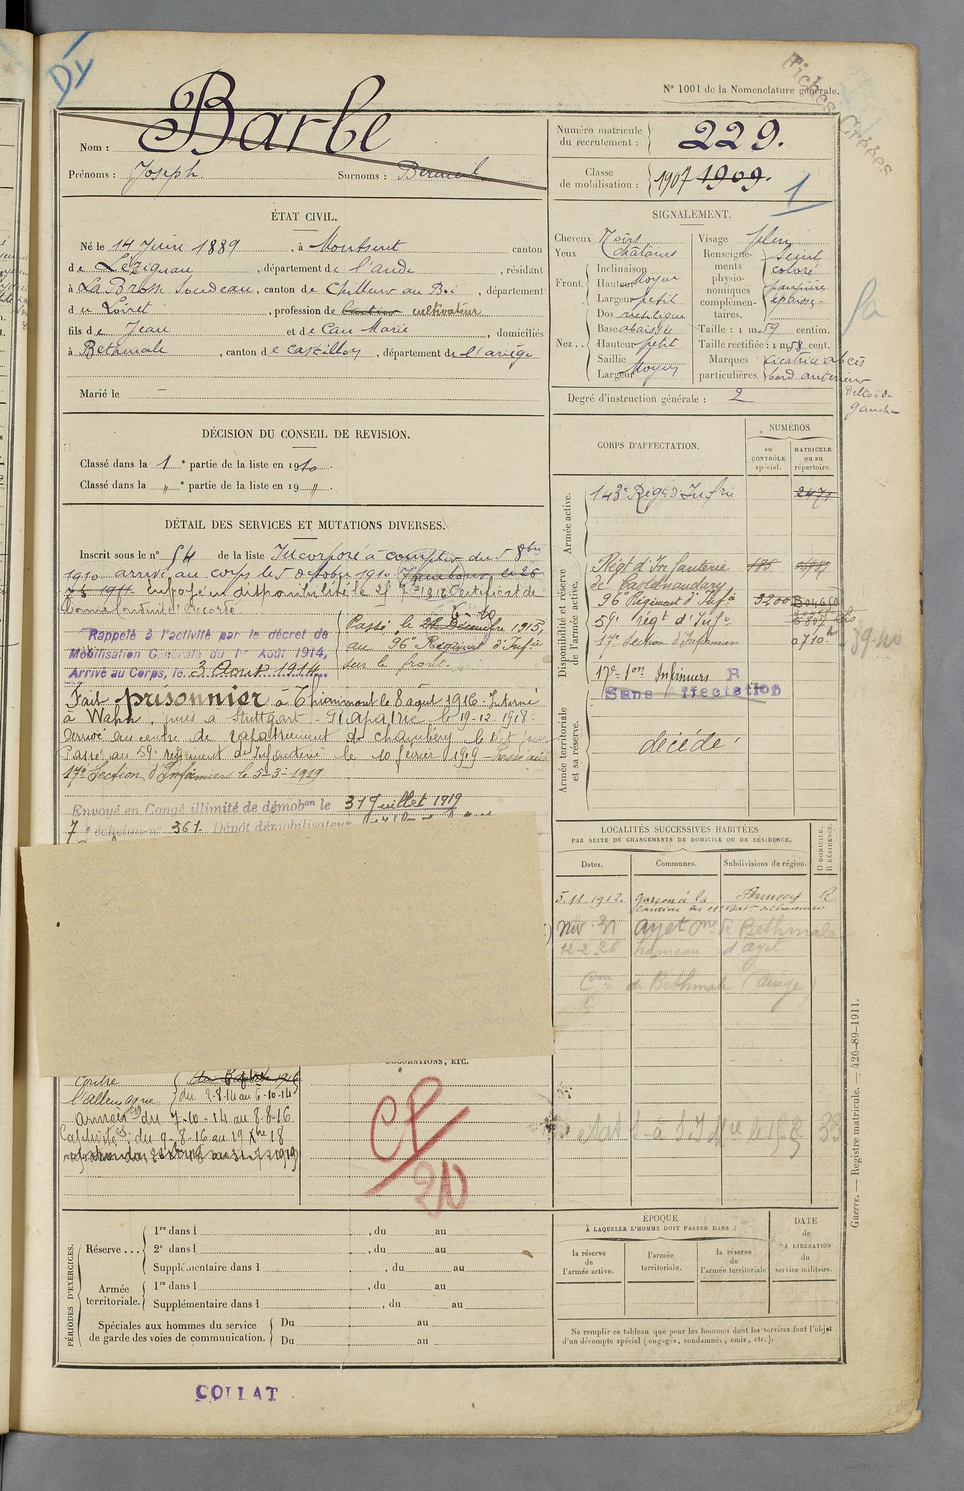 Dy
Fiches Créées
N° 1001 de la Nomenclature générale.
Nom : Barbe
Prénoms : Joseph Surnoms :
Numéro matricule du recrutement : 229.
Classe de mobilisation : 1907 1909.
1
ÉTAT CIVIL.
Né le 14 Juin 1889, à Montseret canton
de Lézignan, département de l'aude, résidant
à La Brosse, canton de Chilleur au Boi, département
du Loiret, profession de cultivateur
fils de Jean et de Cau Marie, domiciliés
à Bethmale, canton de Castillon, département de l'ariège
Marié le
SIGNALEMENT.
Cheveux Noirs
Yeux châtains
Front. Inclinaison
Hauteur Moyen
Largeur petit
Nez. . Dos rectiligne
Base abaissée
Hauteur petit
Saillie
Largeur Moyen
Visage plein
Renseignements physionomiques complémentaires. coloré paupière épaisse
Taille : 1 m. 59 centim.
Taille rectifiée : 1 m. 58 cent.
Marques particulières. Cicatrice abcès bord antérieur Deltoïde gauche
Degré d'instruction générale : 2
DÉCISION DU CONSEIL DE REVISION.
Classé dans la 1e partie de la liste en 1910.
Classé dans la " e partie de la liste en 19 ".
DÉTAIL DES SERVICES ET MUTATIONS DIVERSES.
Inscrit sous le n° 54 de la liste Incorporé à compter du 5 8bre
1910 arrivé au corps le 5 octobre 1910
envoyé en disponibilité le 25 7bre 1912 Certificat de
Bonne Conduite accordé
Rappelé à l'activité par le décret de
Mobilisation Générale du 1er Août 1914,
Arrivé au Corps, le 3 Aout 1914
Passé le 22 Décembre 1915,
au 96e Régiment d'Infie
sur le front.
Fait prisonnier à Thiaumont le 8 aout 1916 - Interné
à Wahn, puis à Stuttgart - Rapatrié le 19-12-1918.
Arrivé au centre de rapatriement de Chambéry le dit jour
Passé au 59e régiment d'Infanterie le 10 février 1919 - Passé à la
17e Section d'Infirmiers le 5-3-1919
Envoyé en Congé illimité de démobon le 31 Juillet 1919
7e échelon n° 361. Dépôt démobilisateur
CORPS D'AFFECTATION.
NUMÉROS
au CONTRÔLE spécial.
MATRICULE ou au répertoire.
Armée active.
143e Régt d'Infrie 2471
Disponibilité et réserve de l'armée active.
Régt d'Infanterie
de Castelnaudary
96e Régiment d'Infie 3200
59e Régt d'Infie
17e Section d'Infirmiers 0710
17e Son Infirmiers R
Sans Affectation
Armée territoriale et sa réserve.
décédé
LOCALITÉS SUCCESSIVES HABITÉES
PAR SUITE DE CHANGEMENTS DE DOMICILE OU DE RÉSIDENCE.
Dates. Communes. Subdivisions de région. D DOMICILE. R RÉSIDENCE.
5.11.1912. garçon à la Annecy R
ayet cne de Bethmale
12 2 26 hameau d'ayet
Cne de Bethmale (Ariège)
DÉCORATIONS, ETC.
Contre
l'allemagne du 2-8-14 au 6-10-14
Armées du 7-10-14 au 8-8-16
Captivité du 9-8-16 au 19 Xbre 18
CP
20
PÉRIODES D'EXERCICES.
Réserve . . . 1re dans l , du au
2e dans l , du au
Supplémentaire dans l , du au
Armée territoriale. 1re dans l , du au
Supplémentaire dans l , du au
Spéciales aux hommes du service de garde des voies de communication. Du au
Du au
ÉPOQUE
À LAQUELLE L'HOMME DOIT PASSER DANS :
la réserve de l'armée active.
l'armée territoriale.
la réserve de l'armée territoriale
DATE de LA LIBÉRATION du service militaire.
Ne remplir ce tableau que pour les hommes dont les services font l'objet
d'un décompte spécial (engagés, condamnés, omis, etc.).
Guerre. — Registre matricule. — 426-89-1911.
COLLAT